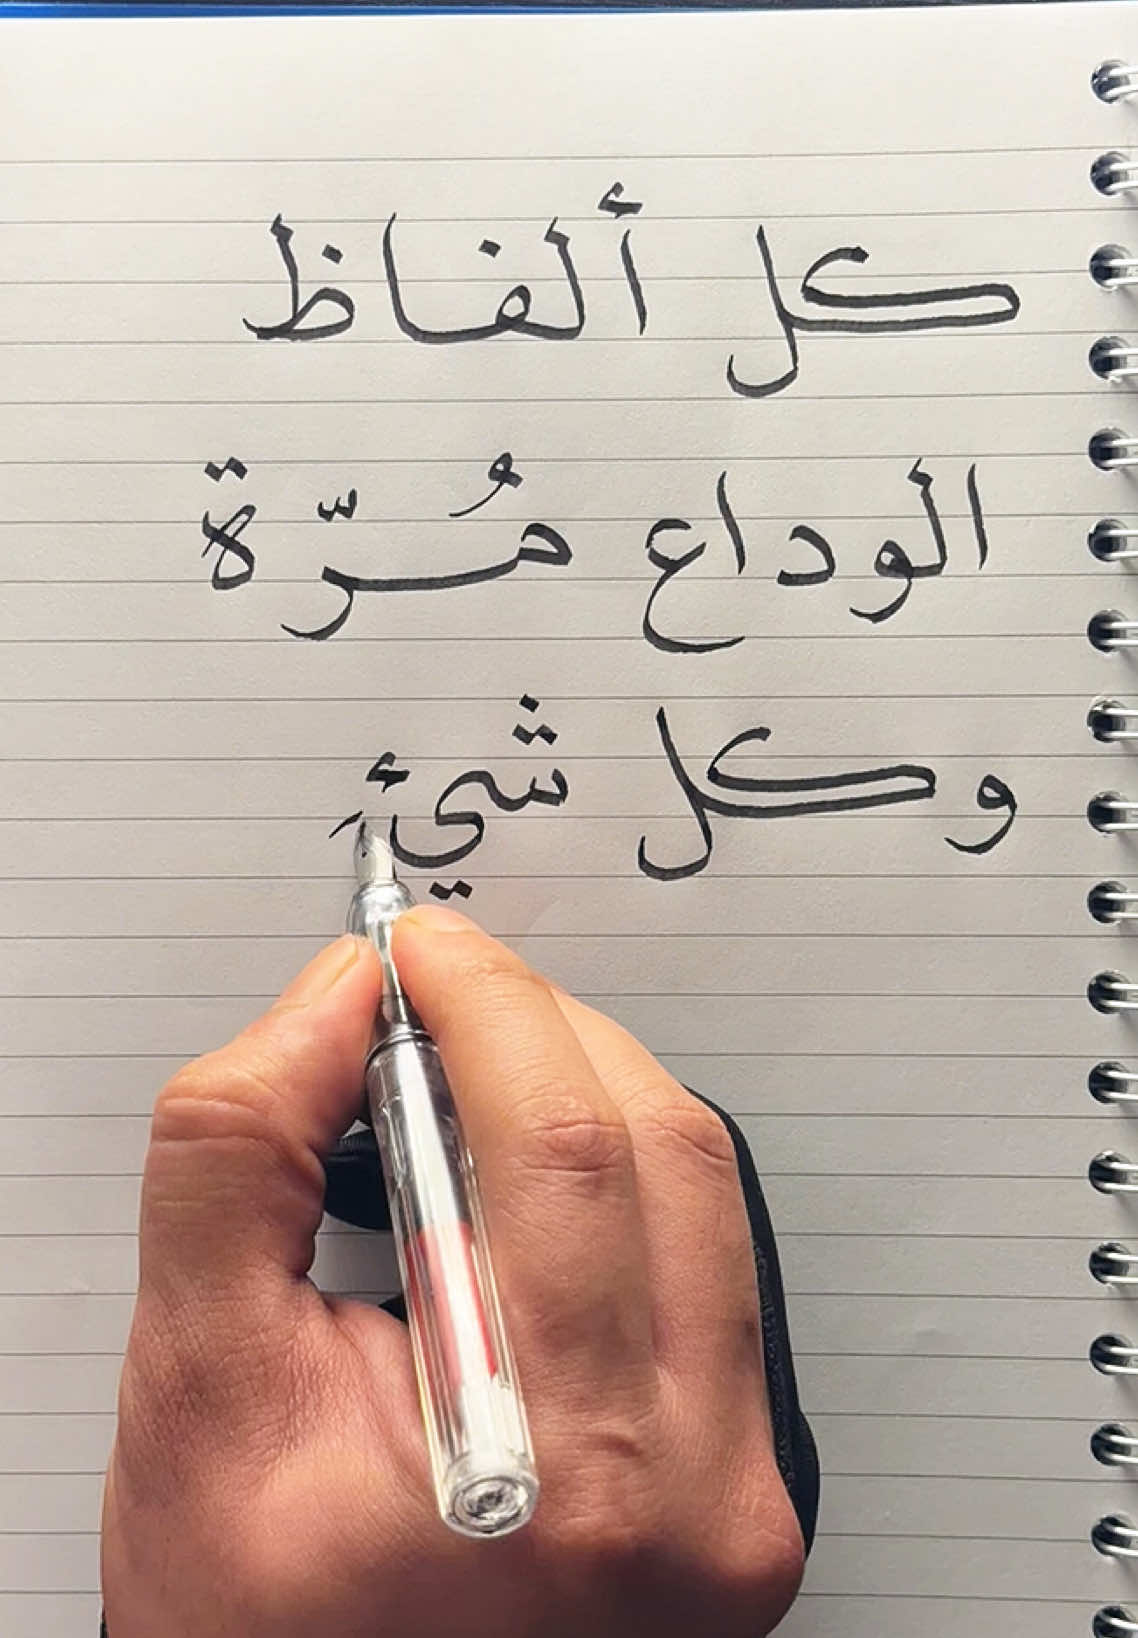 كل ألفاظ
الوداع مُرّة
وكل شيئ